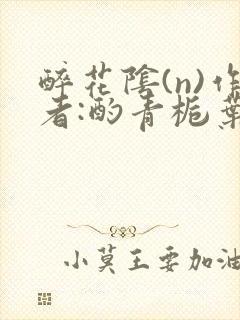 醉花陰(n)作
者:酌青栀葉
小莫王要加油